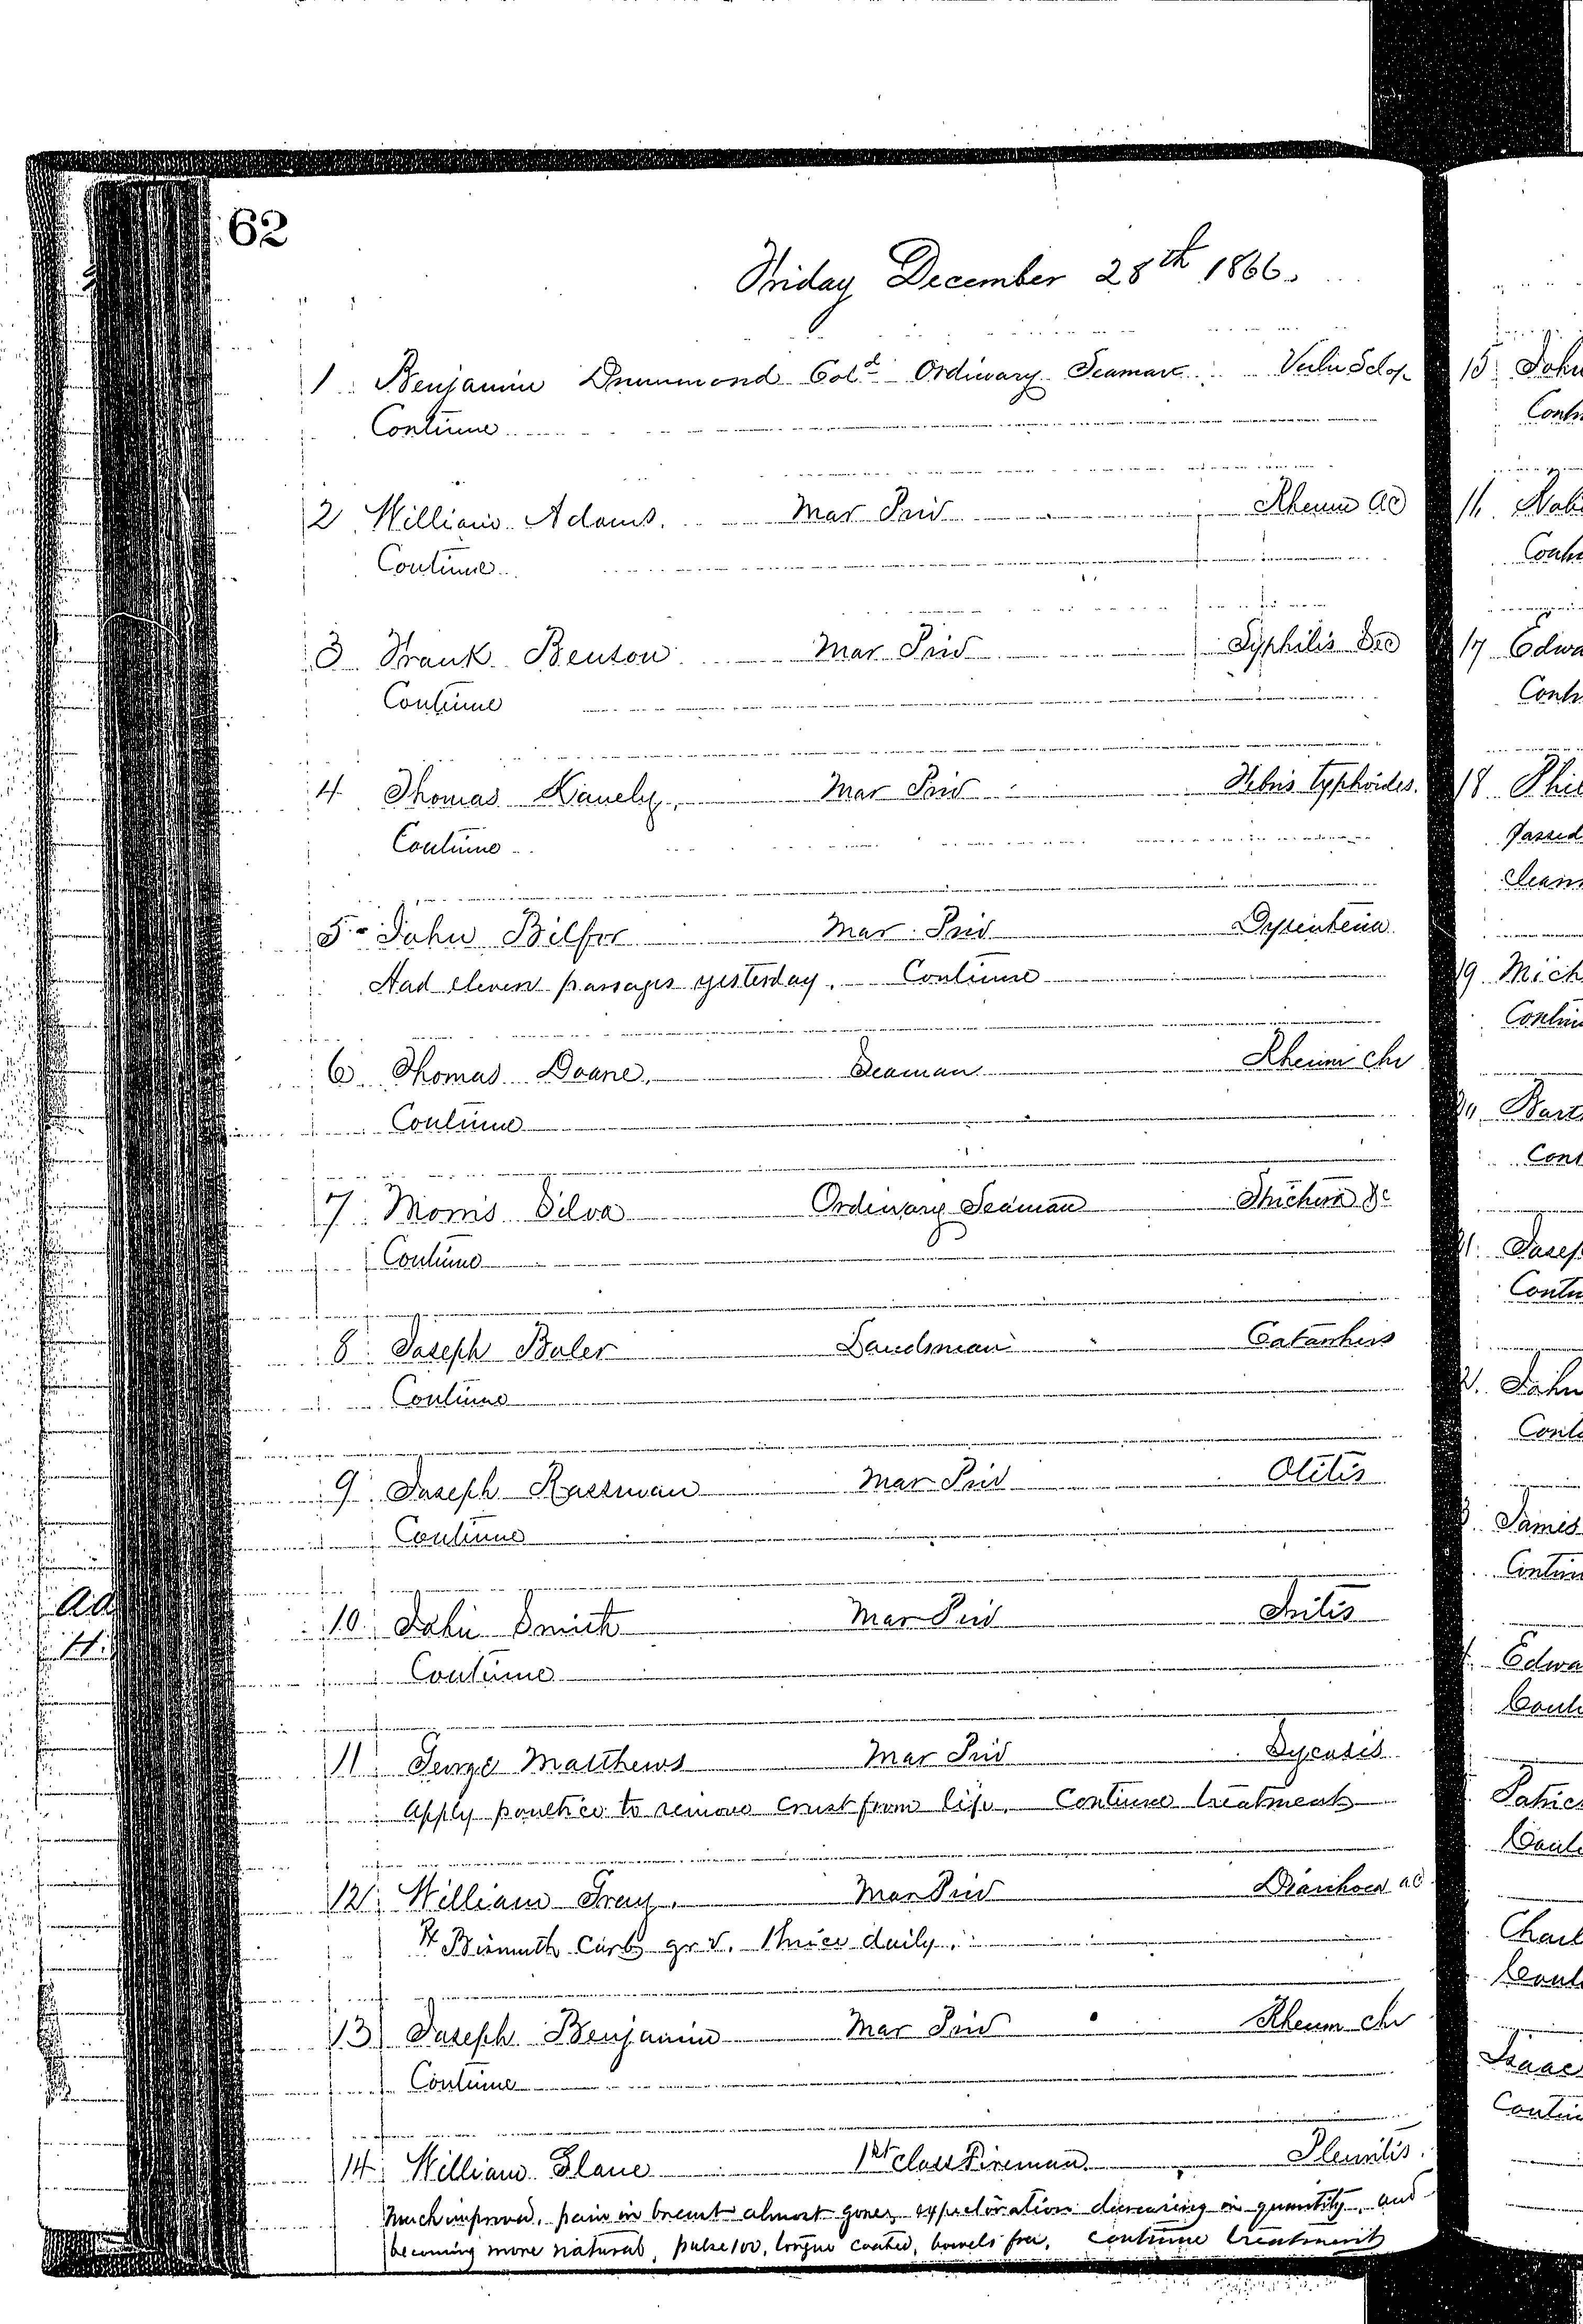 62
Friday December 28th 1866.
1 Benjamin Drummond Cold Ordinary Seaman Vuln Sclop
Continue
2 William Adams. Mar Priv Rheum ac
Continue
3 Frank Benson Mar Priv Syphilis Sec
Continue
4 Thomas Mar Priv Febris typhoides.
Continue
5 John Mar Priv Dysenteria
Had eleven passages yesterday. Continue
6 Thomas Doane. Seaman Rheum chr
Continue
7 Morris Silva Ordinary Seaman &c
Continue
8 Joseph Landsman Catarrhus
Continue
9 Joseph Rassman Mar Priv Otitis
Continue
10 John Smith Mar Priv Iritis
Continue
11 George Matthews Mar Priv Sycosis
Apply poultice to remove crust from lip. Continue treatment
12 William Gray. Mar Priv Diarrhoea ac
℞ Bismuth Carb gr v. thrice daily.
13 Joseph Benjamin Mar Priv Rheum chr
Continue
14 William Slane 1st class Fireman. Pleuritis.
Much improved, pain in breast almost gone, expectoration decreasing in quantity, and
becoming more natural, pulse 100, tongue coated, bowels free. Continue treatment
15 John
16
17
18
19
Edwa
James
Isaac